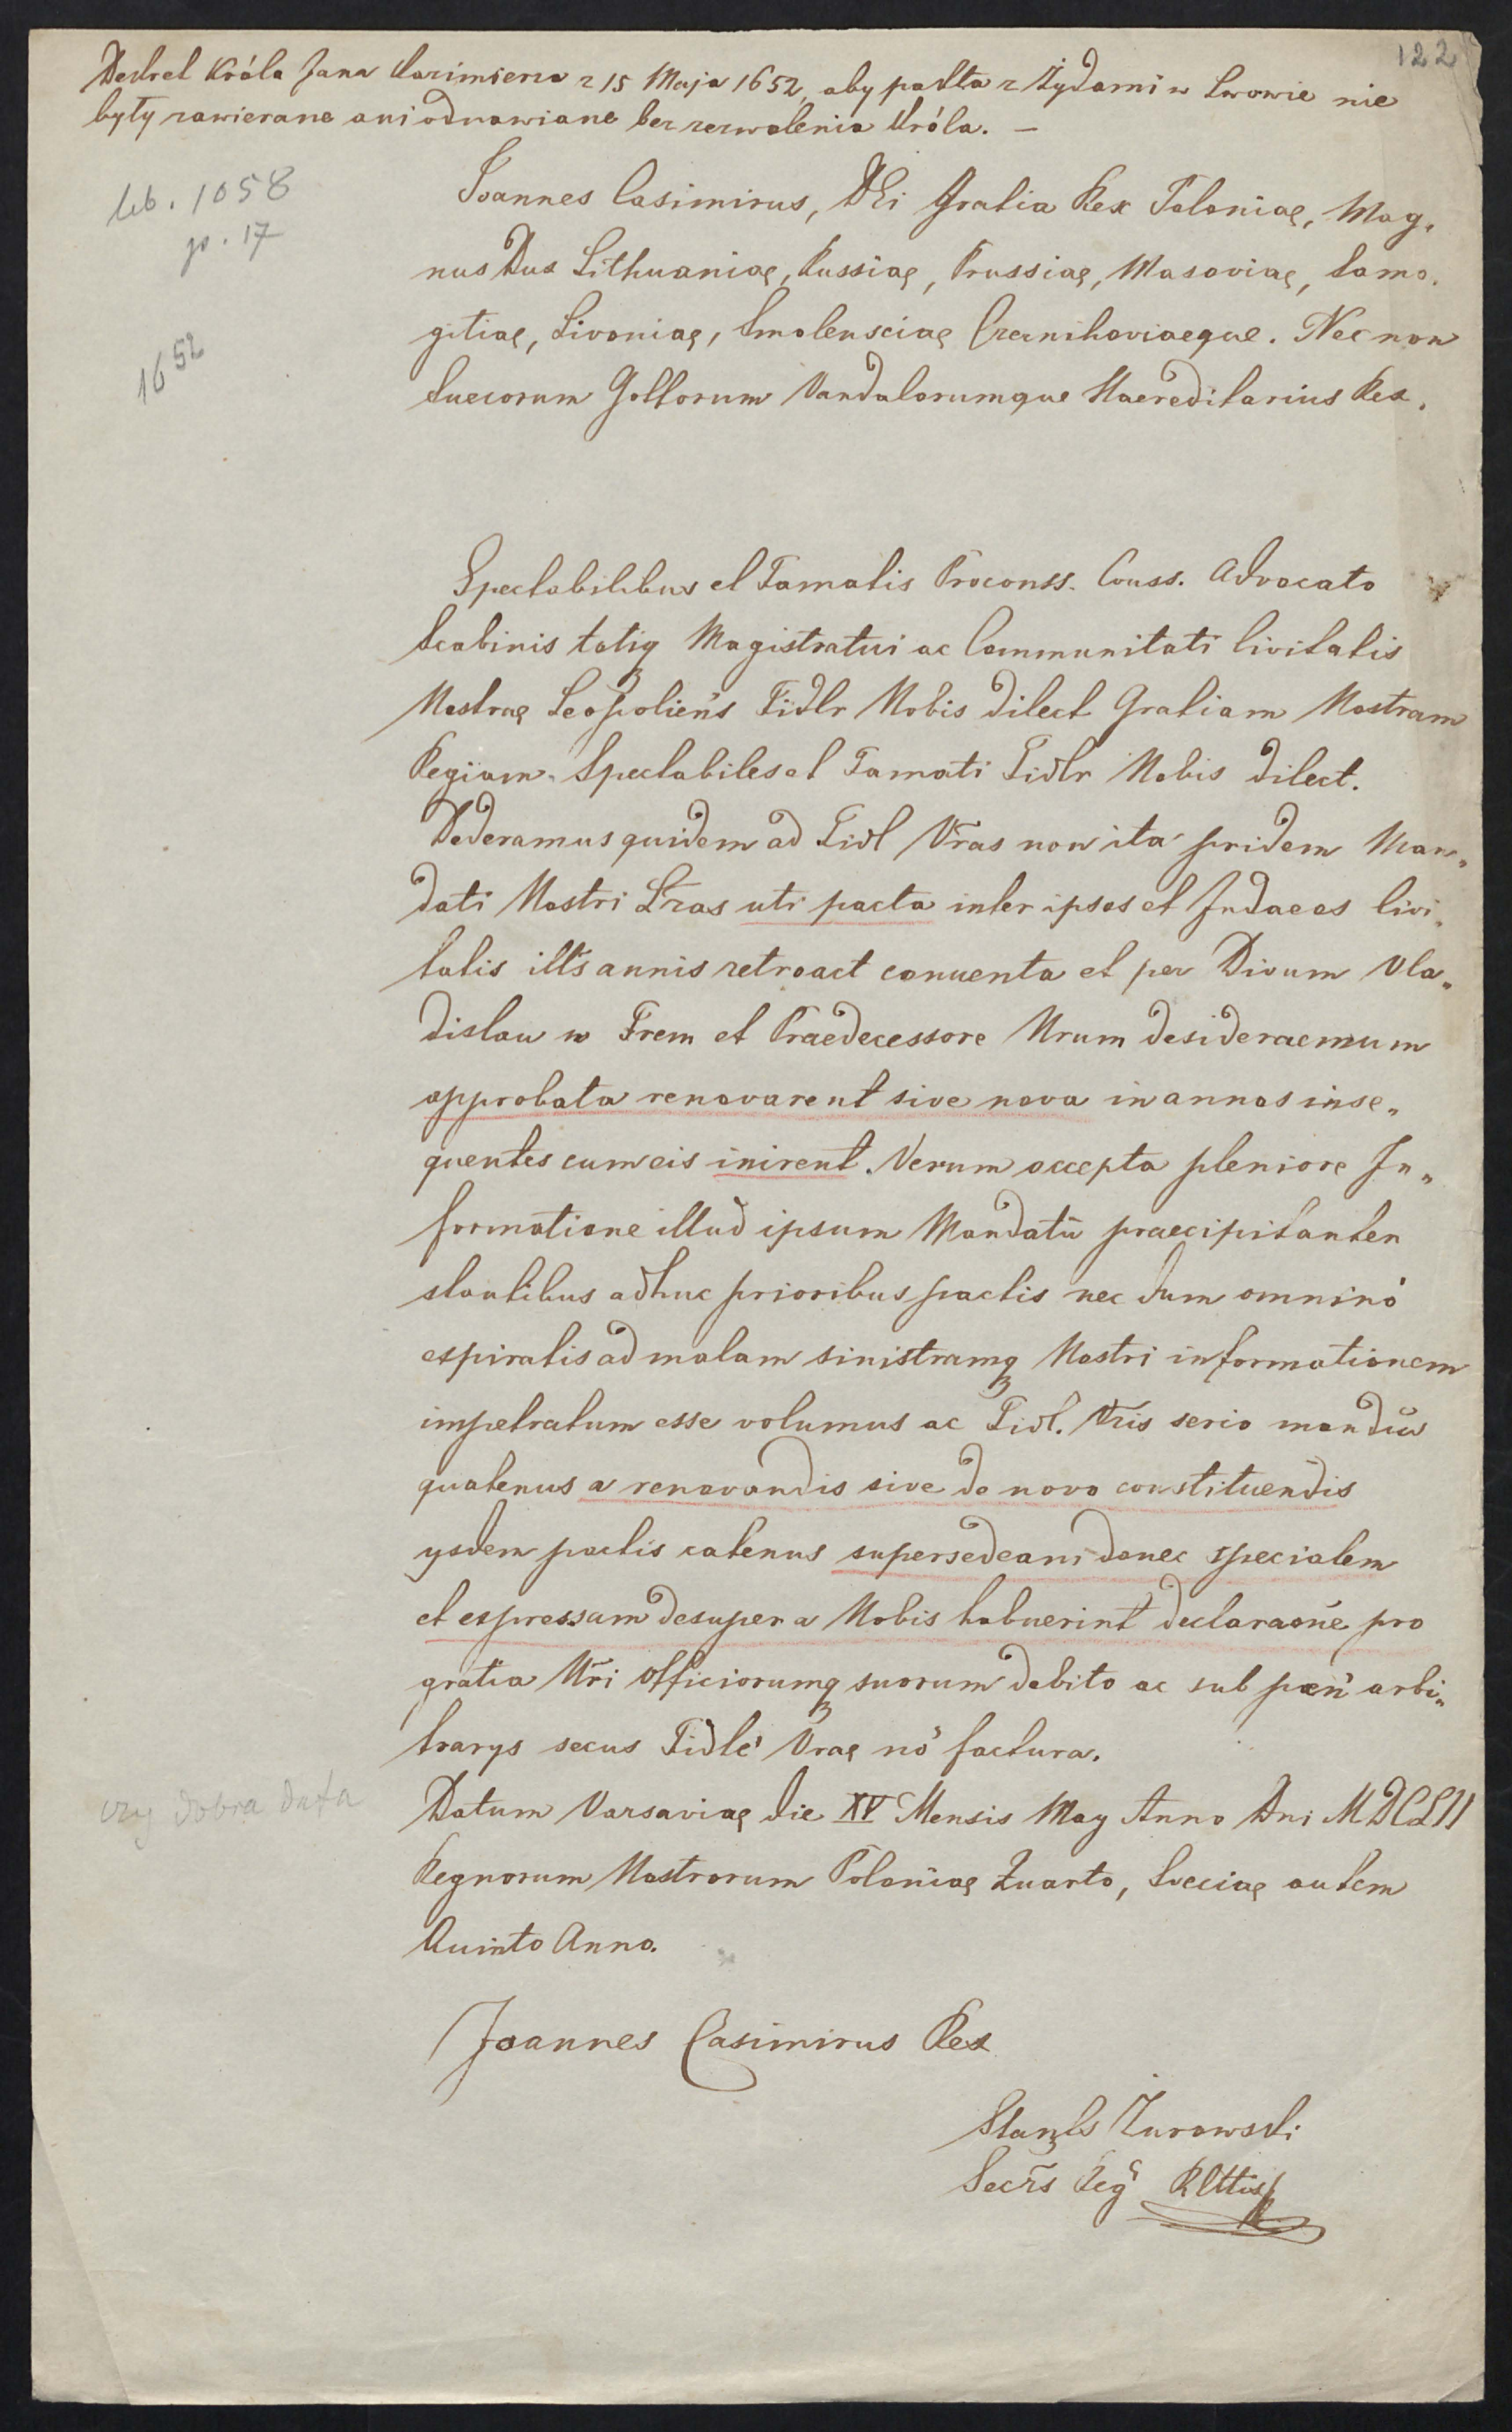 122
Dekret Króla Jana Kazimierza z 15 Maja 1652, aby pakta z Żydami w Lwowie nie
były zawierane ani odnawiane bez zezwolenia Króla. —
lib. 1058
p. 17
1652
Joannes Casimirus, DEi Gratia Rex Poloniaę, Mag,
nus Dux Lithuaniaę, Russiaę, Prussiaę, Masoviaę, Samo.
gitiaę, Livoniaę, Smolensciaę Czernihoviaeque. Nec non
Suecorum Gottorum Vandalorumque Haereditarius Rex.
Spectabilibus et Famatis Proconss. Conss. Advocato
Scabinis totiq Magistratui ac Communitati Civitatis
Nostraę Leopolień̃s Fidlr Nobis dilect Gratiam Nostram
Regiam. Spectabiles et Famati Fidlr Nobis dilect.
Dederamus quidem ad Fidl Vr̃as non ita pridem Man„
dati Nostri Lr̃as uti pacta inter ipsos et Judaeos Civi„
tatis illr̃s annis retroact conuenta et per Divum Vla„
dislau m Frem et Praedecessore Nrum desideraemum
approbata renovarent sive nova in annos inse„
quentes cum eis inirent. Verum accepta pleniore In„
formatione illud ipsum Mandatũ praecipitanter
stantibus adhuc prioribus pactis nec dum omninó
expiratis ad malam sinistramq Nostri informationem
impetratum esse volumus ac Fidl. Vr̃is serio mandũs
quatenus a renovandis sive de novo constituendis
ysdem pactis eatenus supersedeant donec specialem
et expressam desuper a Nobis habuerint declaraoñe pro
gratia Nr̃i officiorumq suorum debito ac sub pœn̄ arbi„
trarys secus Fidle' Vraę nõ factura.
czy dobra data
Datum Varsaviaę die XV Mensis May Anno Dni MDCLII
Regnorum Nostrorum Poloniaę Quarto, Sveciaę autem
Quinto Anno.
Joannes Casimirus Rex
Stanls Żurowski
Secr̃s Reg